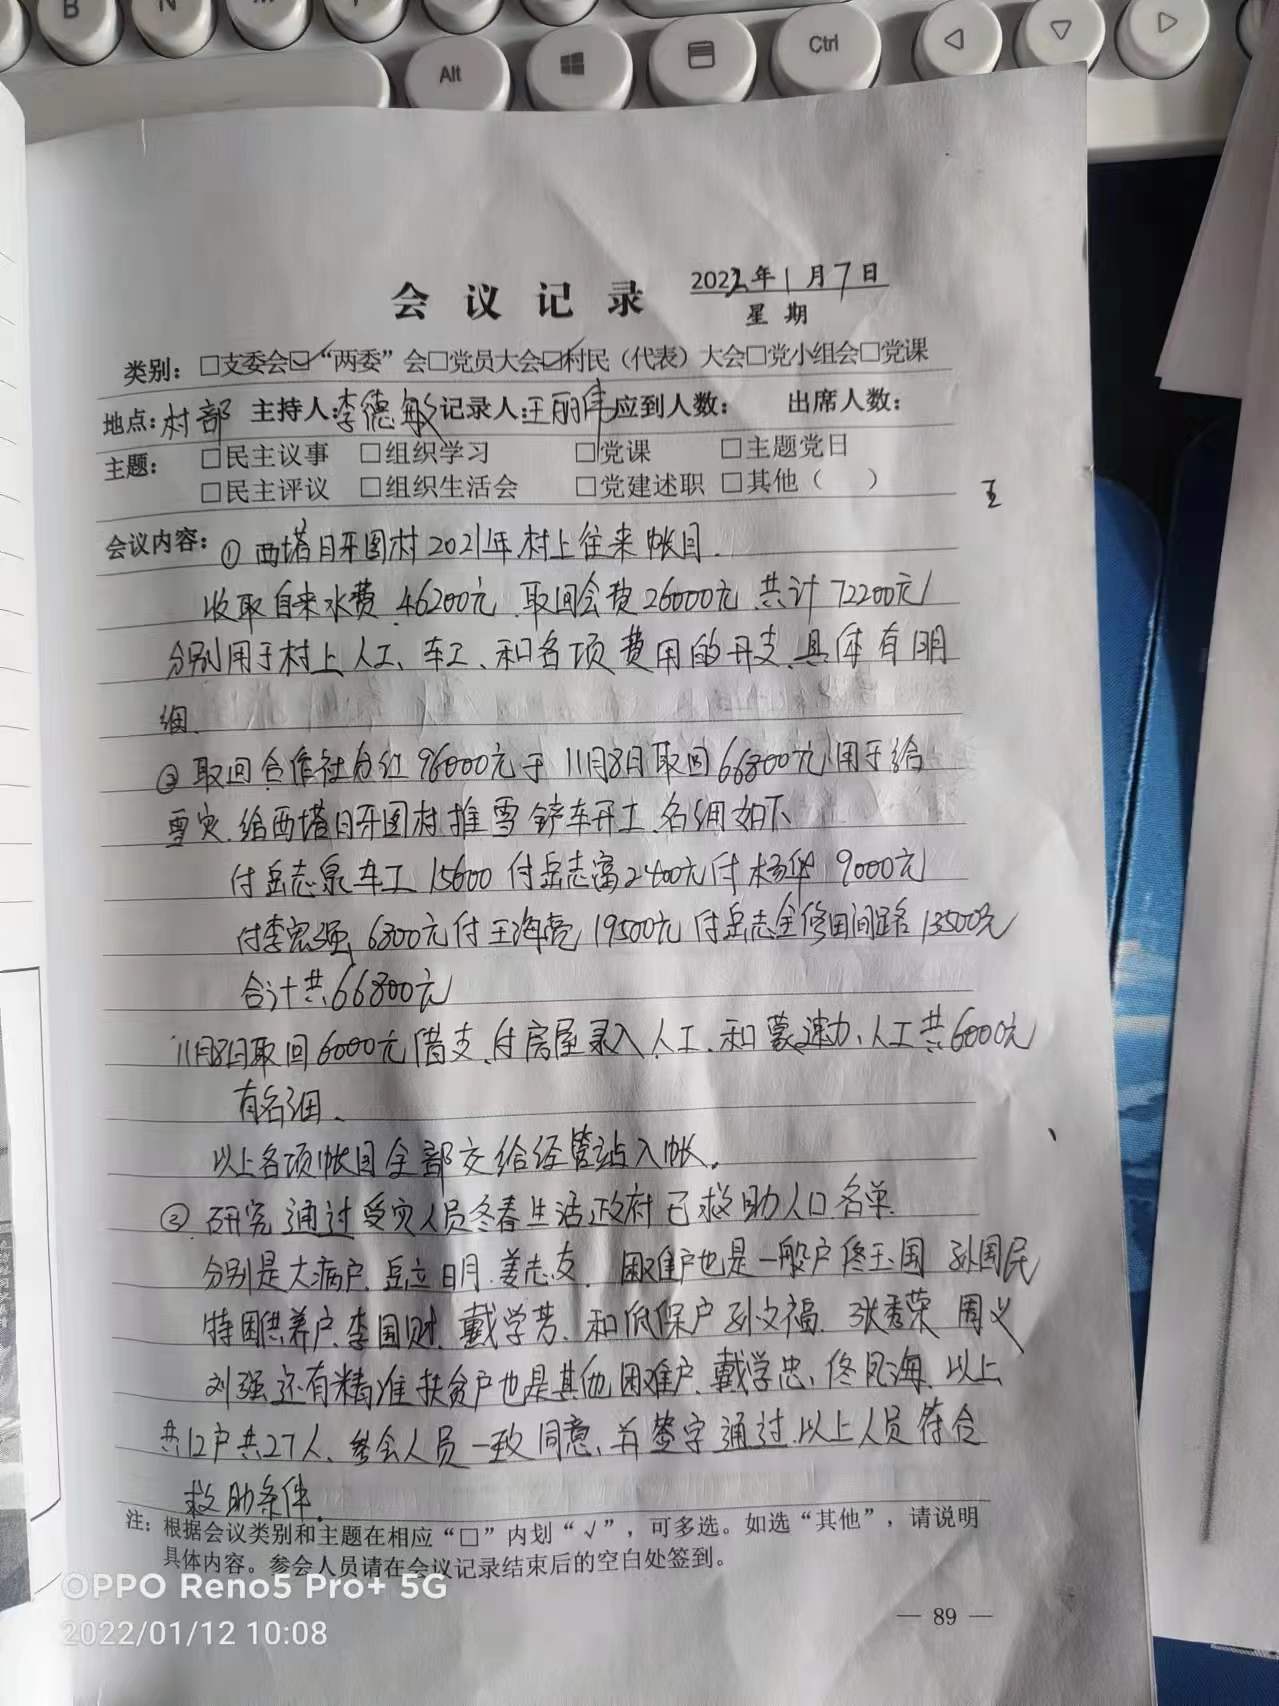 B
N
M
Alt
Ctrl
会议记录 2022年1月7日
星期
类别：□支委会☑“两委”会□党员大会☑村民（代表）大会□党小组会□党课
地点：村部 主持人：李德敏 记录人：王丽伟 应到人数： 出席人数：
主题： □民主议事 □组织学习 □党课 □主题党日
□民主评议 □组织生活会 □党建述职 □其他（ ）
会议内容：① 西塔日牙图村2021年村上往来帐目.
收取自来水费.46200元.取回会费26000元.共计72200元
分别用于村上人工、车工、和各项费用的开支.具体有明
细.
② 取回合作社分红96000元于11月8日取回66800元用于给
雪灾.给西塔日牙图村推雪铲车开工.名细如下
付岳志泉车工15600付岳志富2400元付杨华9000元
付李宏强6800元付王海亮19500元付岳志全修田间路13500元
合计共66800元
11月8日取回6000元借支.付房屋录入人工.和蒙速办、人工共6000元
有名细.
以上各项帐目全部交给经管站入帐.
③.研究通过受灾人员冬春生活政府已救助人口名单.
分别是大病户.豆立明.姜志友. 困难户也是一般户佟玉国 孙国民
特困供养户.李国财.戴学芳.和低保户孙文福.张秀荣 周义
刘强还有精准扶贫户也是其他困难户.戴学忠、佟凤海.以上
共12户共27人.参会人员一致同意、并签字通过.以上人员符合
救助条件.
注：根据会议类别和主题在相应“□”内划“√”，可多选。如选“其他”，请说明
具体内容。参会人员请在会议记录结束后的空白处签到。
OPPO Reno5 Pro+ 5G
2022/01/12 10:08
— 89 —